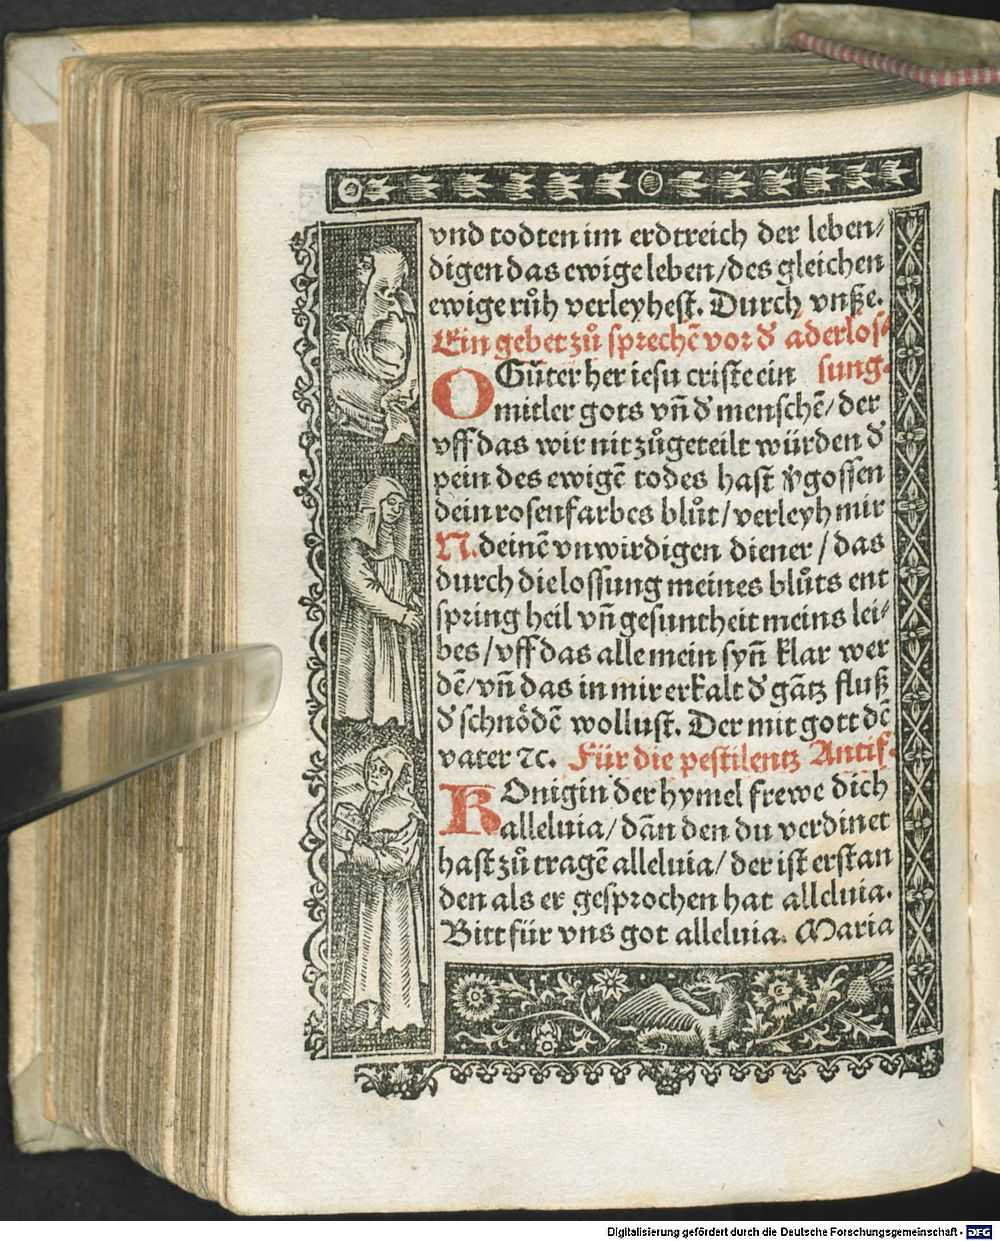 vnd todten im erdtreich der leben/
digen das ewige leben/des gleichen
ewige růh verleyhest. Durch vnße.
Ein gebet zů sprechē vor d' aderlos/
sung.
O Gůter her iesu criste ein
mitler gots vn̄ d' menschē/ der
vff das wir nit zůgeteilt würden d'
pein des ewigē todes hast v'gossen
dein rosenfarbes blůt/verleyh mir
N. deinē vnwirdigen diener/das
durch die lossung meines blůts ent
spring heil vn̄ gesuntheit meins lei/
bes/vff das alle mein syn̄ klar wer
dē/vn̄ das in mir erkalt d' gātz fluß
d' schnödē wollust. Der mit gott dē
vater ⁊c. Für die pestilentz Antif.
KOnigin der hymel frewe dich
alleluia/dān den du verdinet
hast zů tragē alleluia/der ist erstan
den als er gesprochen hat alleluia.
Bitt für vns got alleluia. Maria
Digitalisierung gefördert durch die Deutsche Forschungsgemeinschaft - DFG